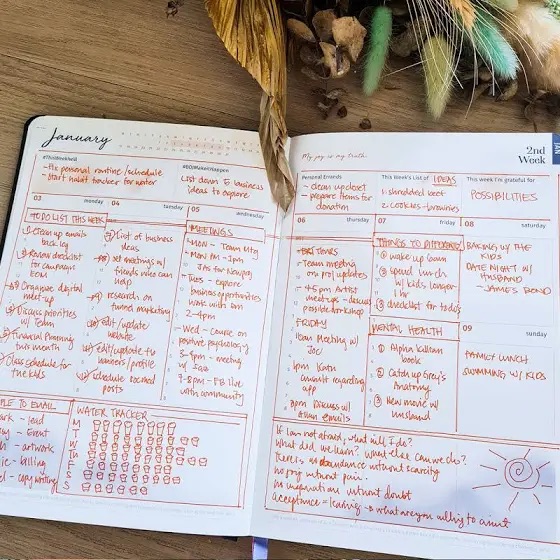 January
#ThisWeekWill
- Fix personal routine/schedule
- Start habit tracker for water
#GOMakeItHappen
List down 5 business
ideas to explore
03 monday
04 tuesday
05 wednesday
TO DO LIST THIS WEEK
① Clean up emails
back log
② Review checklist
for campaign
③ Organize digital
meet-up
④ Discuss priorities
w/ Team
⑤ Financial planning
this month
⑥ Class schedule for
the kids
⑦ List of business
ideas
⑧ Set meetings w/
friends who can
help
⑨ research on
funnel marketing
⑩ edit/update
website
edit/update
banners/profile
schedule social
posts
MEETINGS
- Mon - Team Mtg
- Mon AM - 1pm
- Tues - explore
business opportunities
work with Ian
2-4pm
- Wed - course on
positive psychology
3-4pm - meeting
9-8pm - FB live
with community
PEOPLE TO EMAIL
- lead
- event
- artwork
- billing
- copywriting
WATER TRACKER
M
T
W
Th
F
S
S
My joy is my truth.
2nd
Week
JAN
Personal Errands
- clean up closet
- prepare items for
donation
This Week's List of IDEAS
1. shredded beef
2. cookies - brownies
This week I'm grateful for
POSSIBILITIES
06 thursday
07 friday
08 saturday
- Team meeting
on proj updates
- 4-5pm Artist
meetings - discuss
FRIDAY
Team Meeting w/
Joc
1pm Kath
consult regarding
app
3pm Discuss w/
THINGS TO DO DIFFERENT
① wake up 6am
② spend lunch
w/ kids longer
1 hr
③ checklist for todo's
MENTAL HEALTH
① Alpha Kallian
book
② Catch up Grey's
Anatomy
③ New movie w/
husband
BAKING W/ THE
KID
DATE NIGHT W/
HUSBAND
- JAMES BOND
09 sunday
FAMILY LUNCH
SWIMMING W/ KIDS
If I am not afraid, what will I do?
What did we learn? What else can we do?
There is no abundance without scarcity
no joy without pain.
no inspiration without doubt
Acceptance = learning → what are you willing to admit